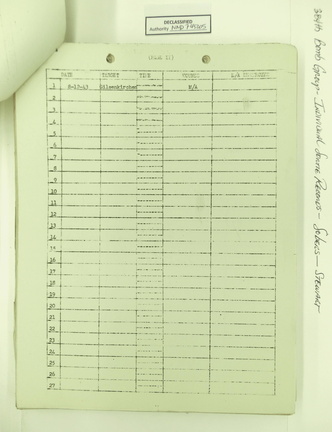 DECLASSIFIED
Authority NND 745005
384th Bomb Group - Individual Sortie Records - Sebers - Stewart
DATE TARGET TIME
1 8-12-43 Gilsenkirchen N/A
2
3
4
5
6
7
8
9
10
11
12
13
14
15
16
17
18
19
20
21
22
23
24
25
26
27